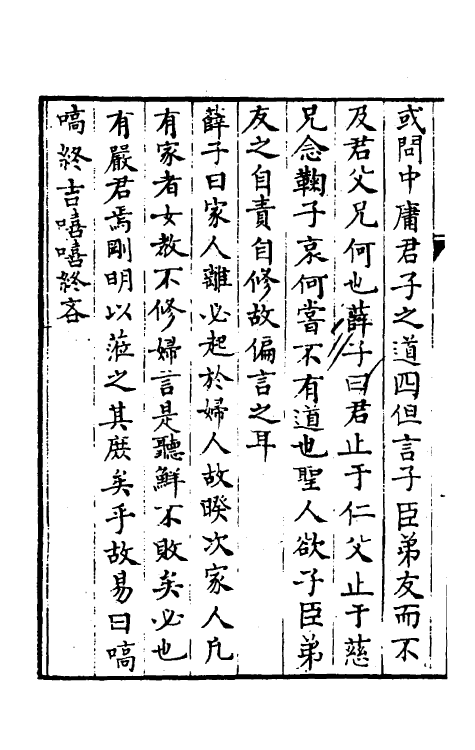 或問中庸君子之道四但言子臣弟友而不
及君父兄何也薛子曰君止于仁父止于慈
兄念鞠子哀何嘗不有道也聖人欲子臣弟
友之自責自修故偏言之耳
薛子曰家人離必起於婦人故睽次家人凡
有家者女教不修婦言是聽鮮不敗矣必也
有嚴君焉剛明以蒞之其庶矣乎故易曰嗃
嗃終吉嘻嘻終吝